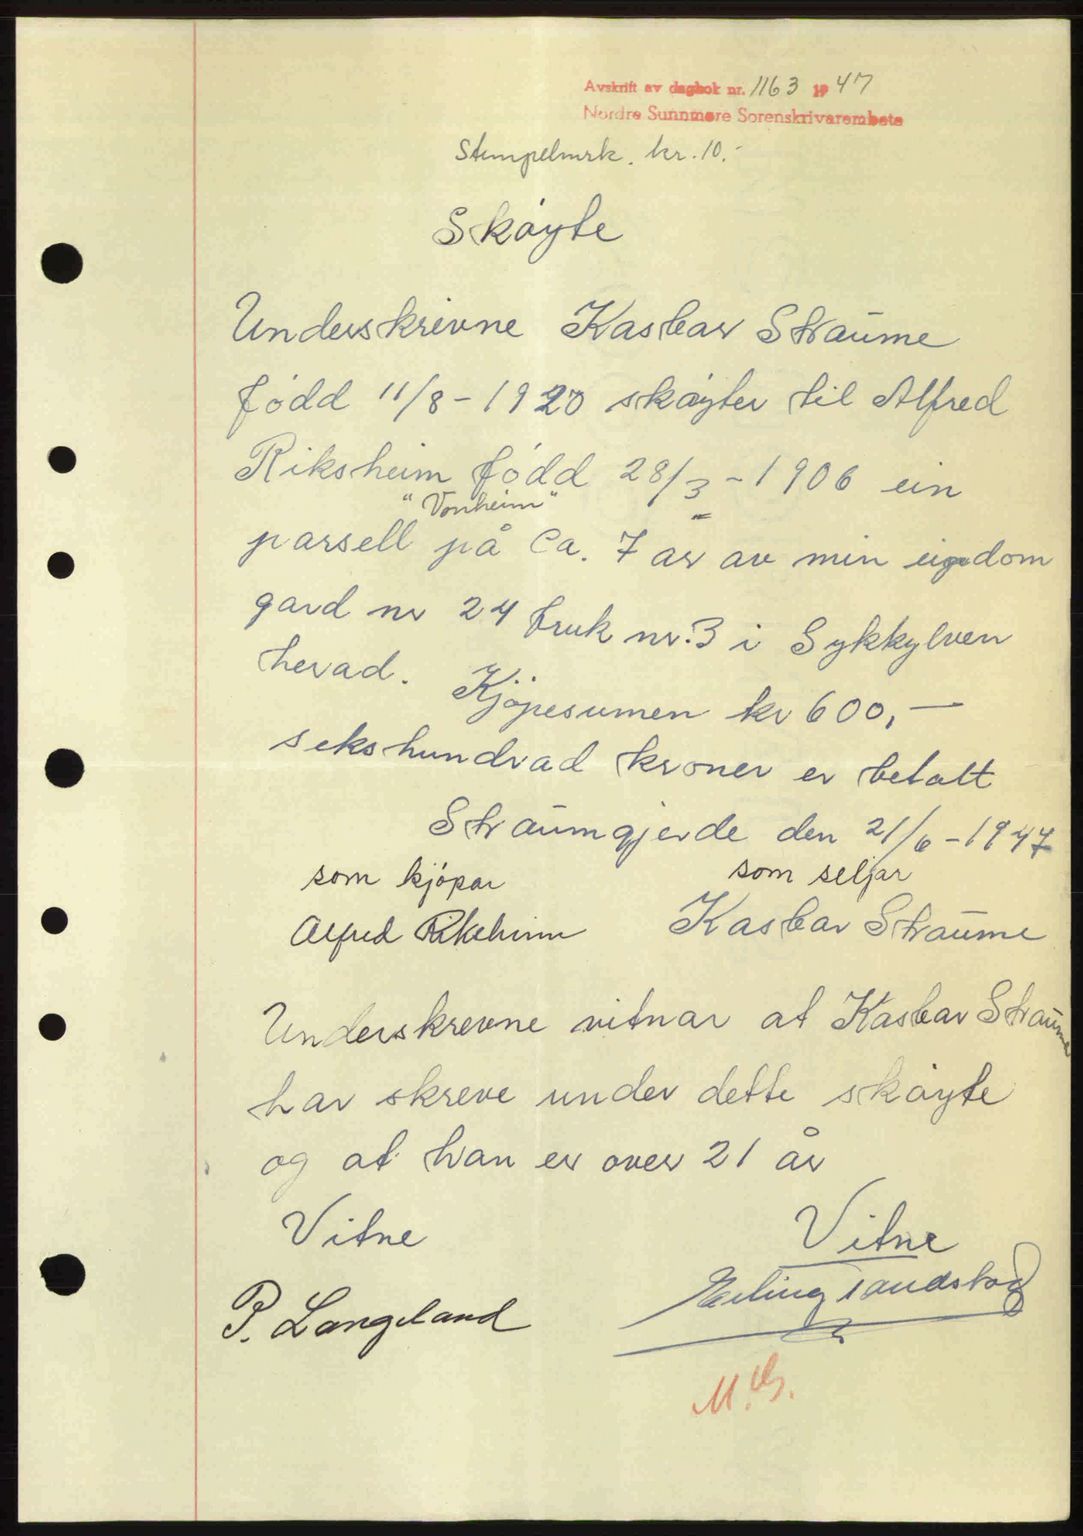 Avskrift av dagbok nr. 1163 1947
Nordre Sunnmøre Sorenskrivarembete
Stempelmrk. kr. 10.-
Skøyte
Underskrivne Kasbar Straume
född 11/8 - 1920 skøyter til Alfred
Riksheim född 28/3 - 1906 ein
"Vonheim"
parsell på Ca. 7 ar av min eigedom
gard nr 24 bruk nr. 3 i Sykkylven
herad. Kjøpesumen kr 600,—
sekshundrad kroner er betalt
Straumgjerde den 21/6 - 1947
som kjøpar som seljar
Alfred Riksheim Kasbar Straume
Underskrevne vitnar at Kasbar Straume
har skreve under dette skøyte
og at han er over 21 år
Vitne Vitne
P. Langeland Erling Tandstad
M.G.